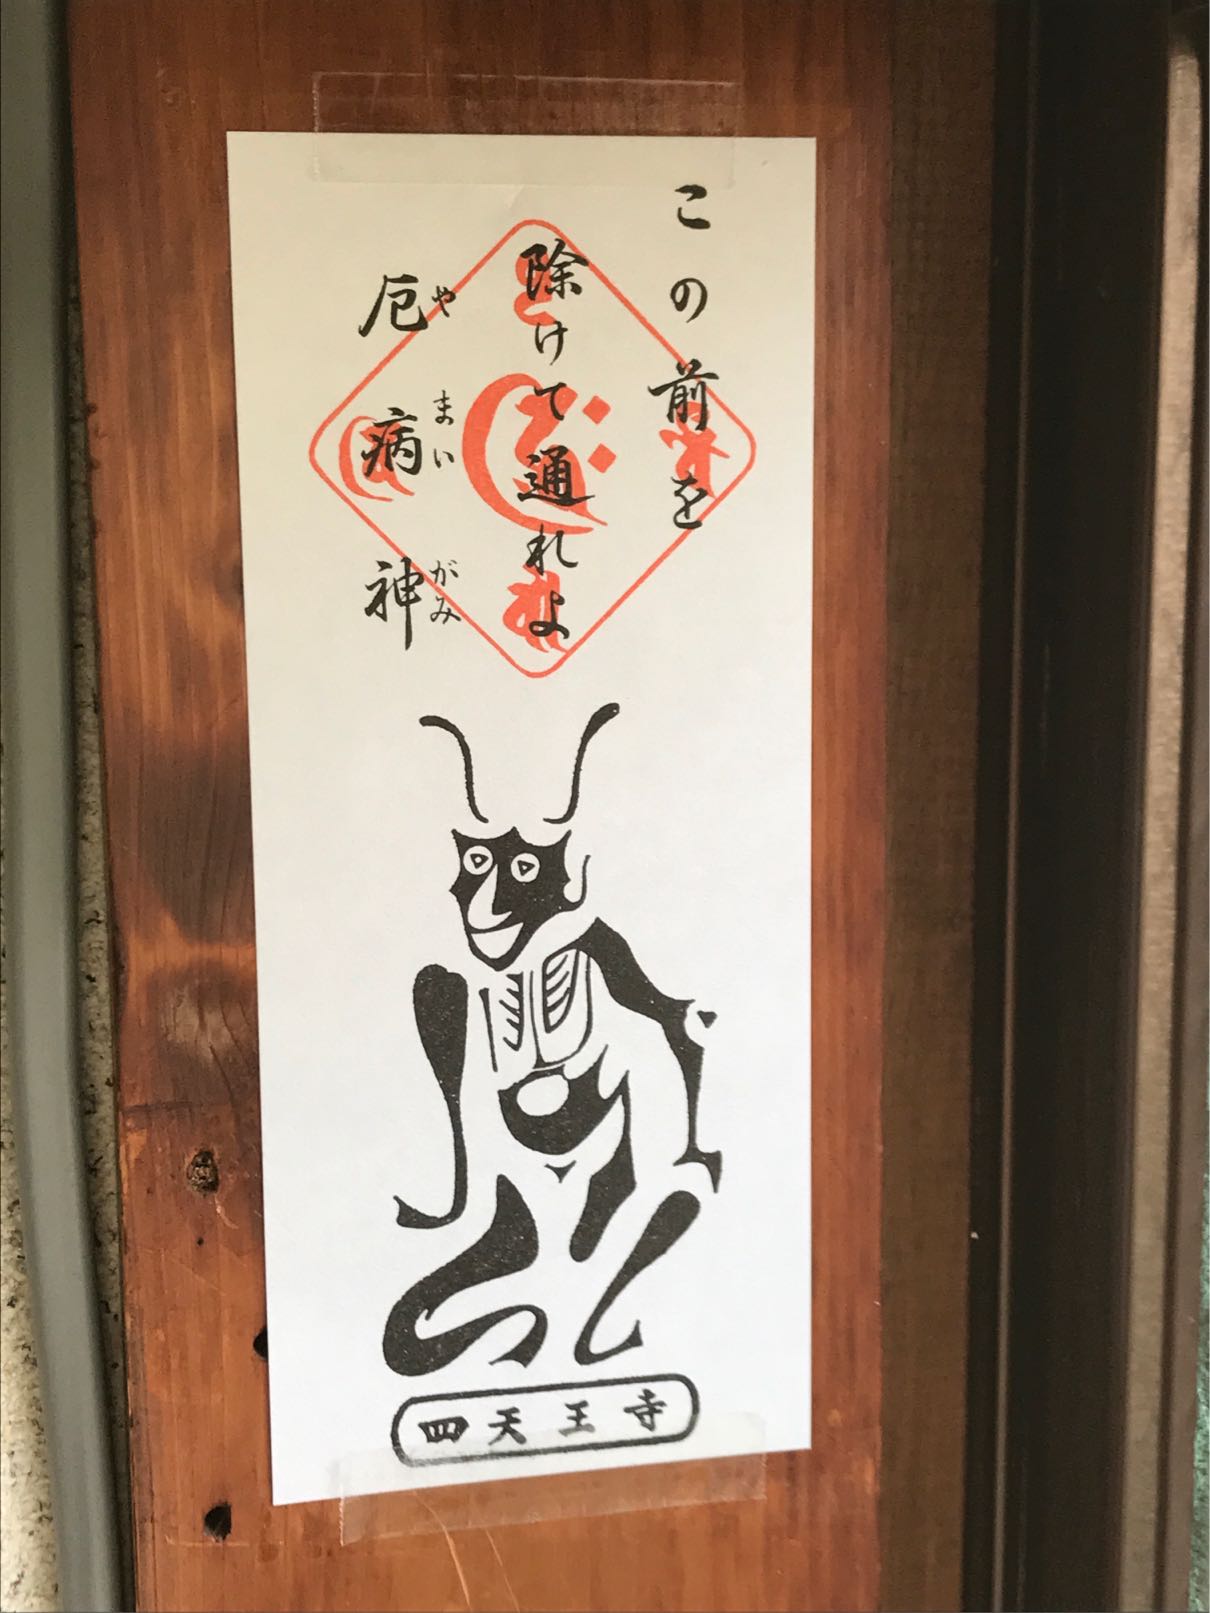 この前を
除けて通れよ
厄病神
やまいがみ
四天王寺